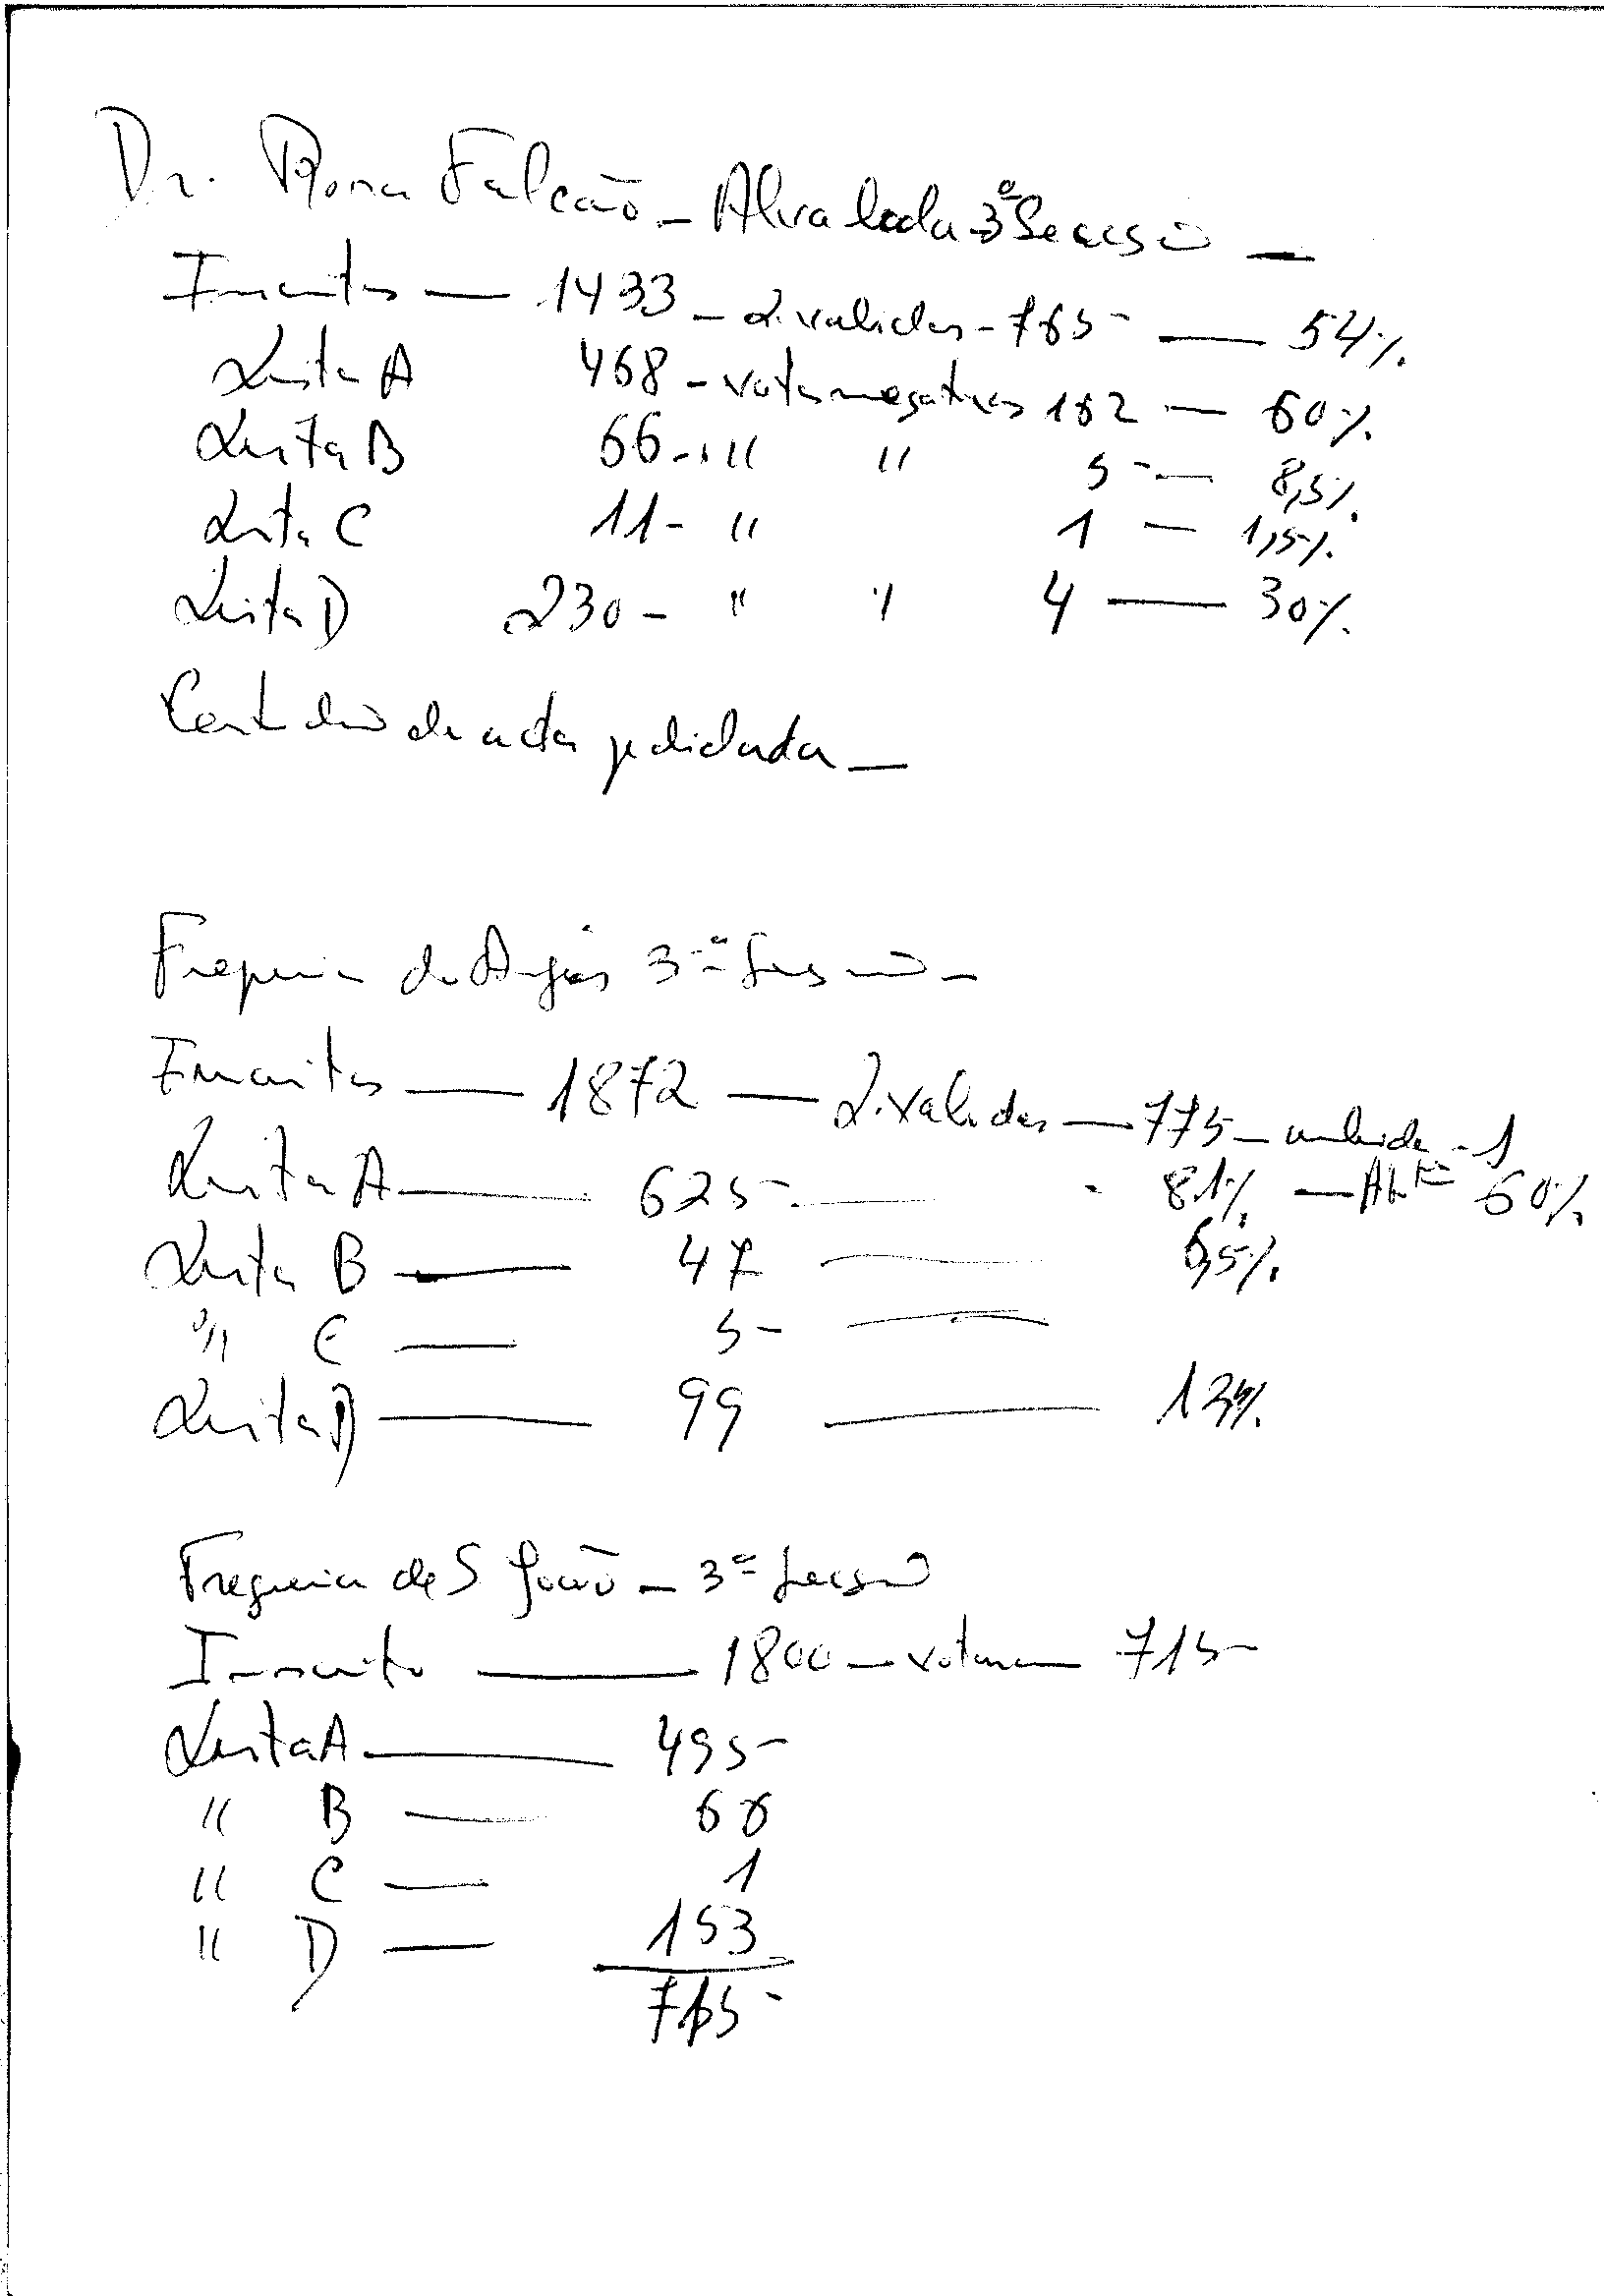 Dr. Falcão - Alvalade 3ª Secção -
Inscritos - 1433 - L. validas - 765 - 54%
Lista A 468 - votos negativos 162 - 60%
Lista B 66 - " " 5 - 8,5%
Lista C 11 - " 1 - 1,5%
Lista D 230 - " " 4 - 30%
Certidão de acta pedida -
Freguesia de Anjos 3ª Secção -
Inscritos - 1872 - L. validas - 775 - 1
Lista A - 625 - 81% - Abst 60%
Lista B - 47 - 6,5%
" C - 5 -
Lista D - 99 - 13%
Freguesia de S João - 3ª Secção
Inscritos - 1800 - votaram 715
Lista A - 495
" B - 66
" C - 1
" D - 153
715